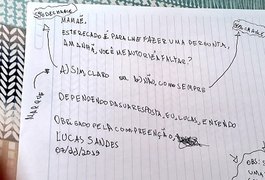 MAMÃE,
ESTE RECADO É PARA LHE FAZER UMA PERGUNTA,
AMANHÃ, VOCÊ ME AUTORIZA FALTAR?
A) SIM, CLARO OU B) NÃO, COMO SEMPRE
MARQUE
DEPENDENDO DA SUA RESPOSTA, EU, LUCAS, ENTENDO
OBRIGADO PELA COMPREENÇÃO,
LUCAS SANDES
OBS: S
UMA